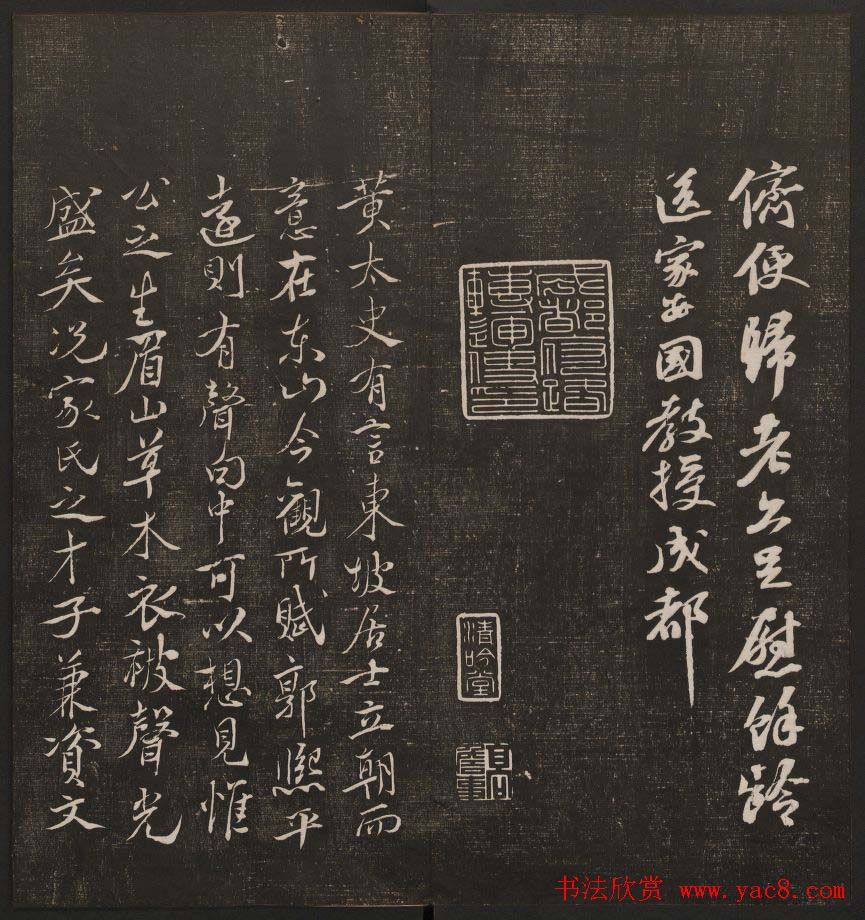 儕便歸老公足慰餘齡
送家安國教授成都
清吟堂
黃太史有言東坡居士立朝而
意在東山今觀所賦郭熙平
遠則有聲句中可以想見惟
公之生眉山草木衣被聲光
盛矣況家氏之才子兼資文
书法欣赏 www.yac8.com